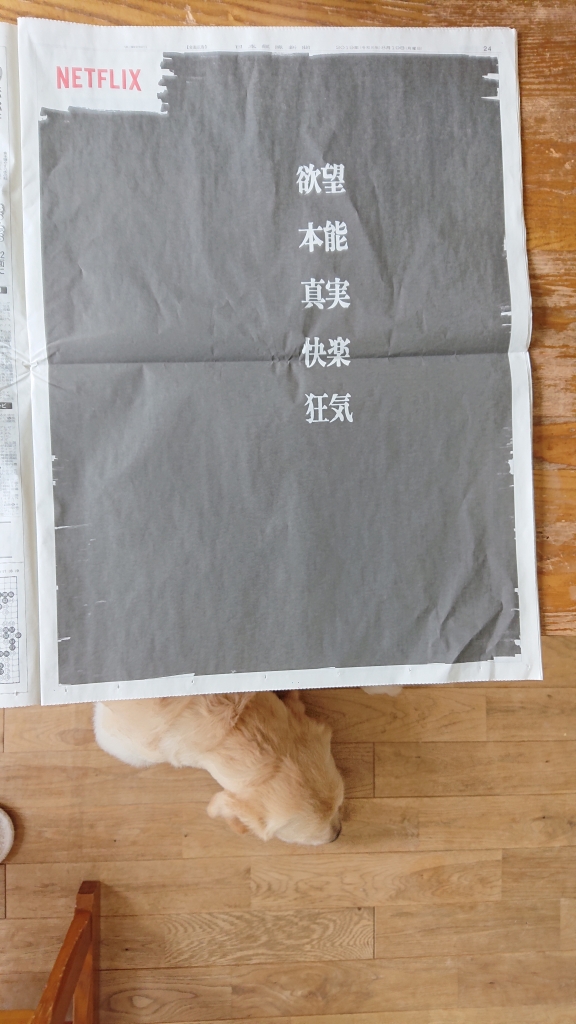 日本経済新聞
24
NETFLIX
欲望
本能
真実
快楽
狂気